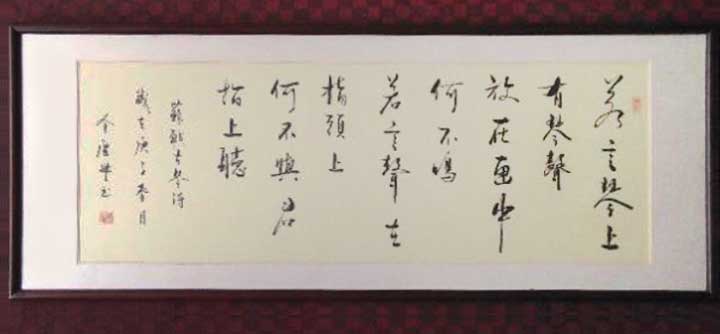 若言琴上
有琴聲
放在匣中
何不鳴
若言聲在
指頭上
何不與君
指上聽
蘇軾琴詩
歲在庚子春月